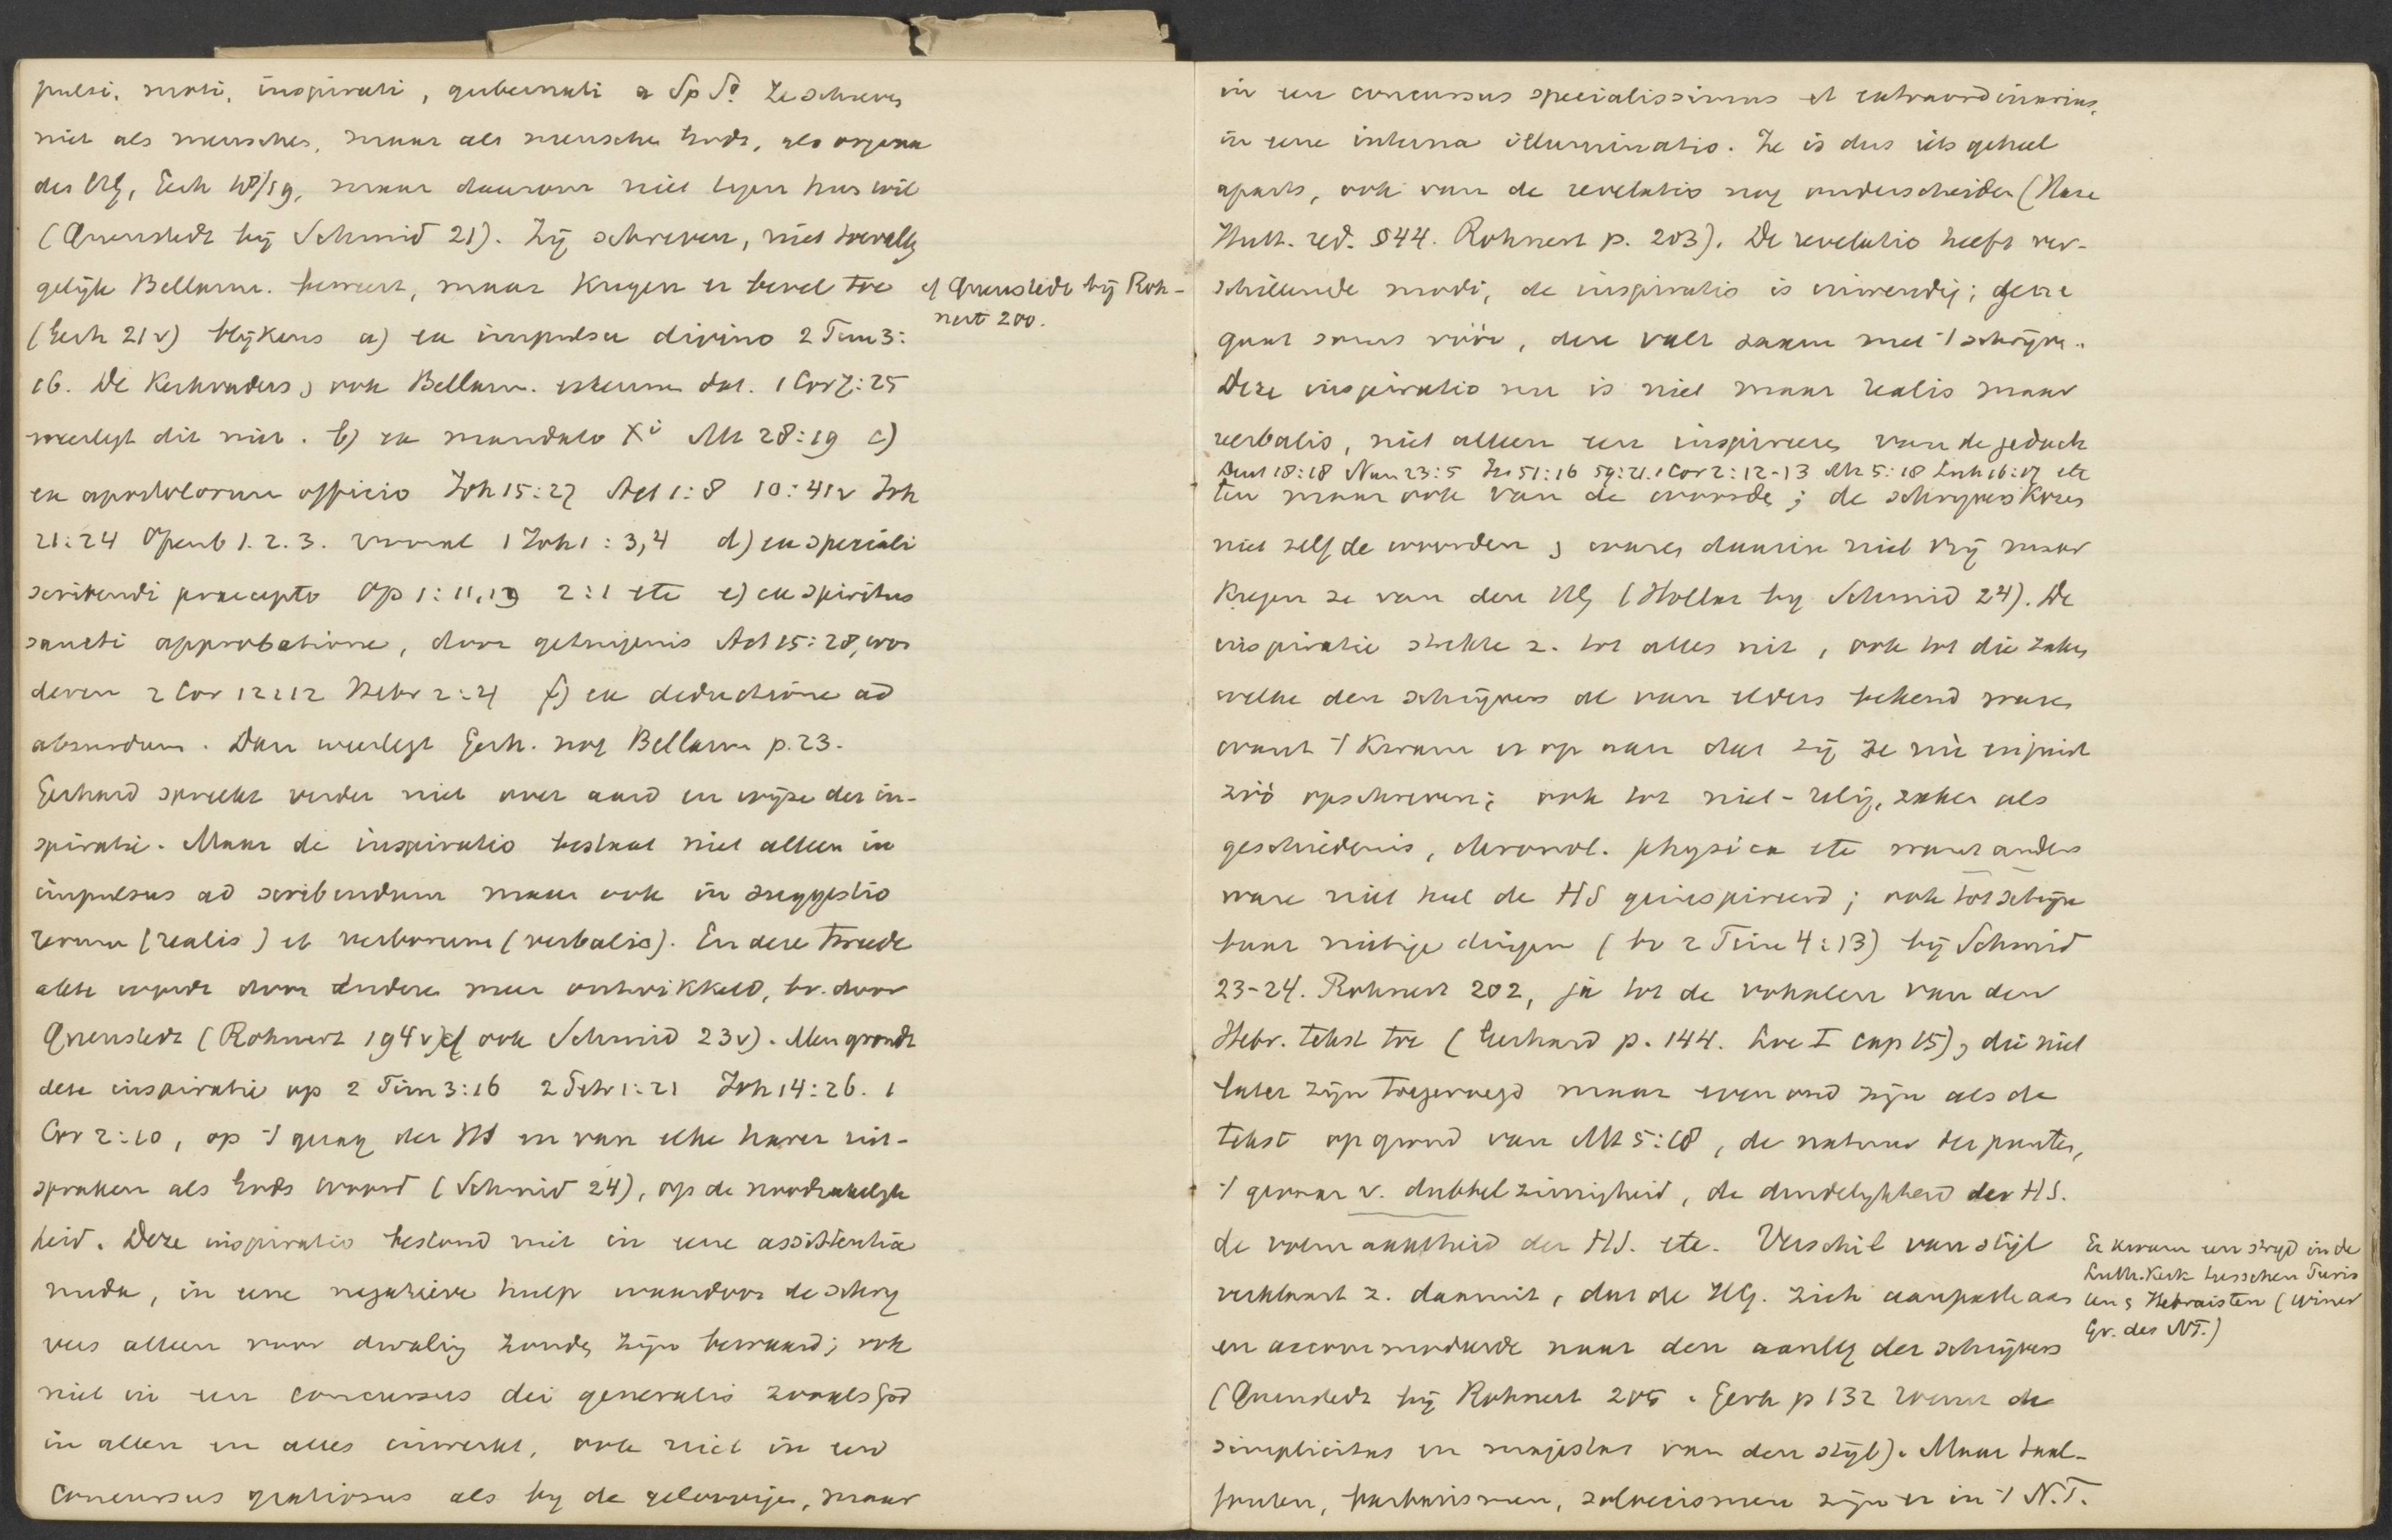 pulsi, moti, inspirati, gubernati a Sp So. Ze schreven
niet als menschen, maar als mensche Gods, als organa
des HG, Gerh 18/19, maar daarom niet tegen hun wil
(Quenstedt bij Schmid 21). Zij schreven, niet toevallig
gelijk Bellarm. beweert, maar kregen er bevel toe
cf Quenstedt bij Roh-
nert 200.
(Gerh 21v) blijkens a) ex impulsu divino 2 Tim 3:
16. De Kerkvaders, ook Bellarm. erkennen dat. 1 Cor 7:25
weerlegt dit niet. b) ex mandato Xi Mt 28:19 c)
ex apostolorum officio Joh 15:27 Act 1:8 10:41v Joh
21:24 Openb 1.2.3. vooral 1 Joh 1:3,4 d) ex speciali
scribendi praecepto Op 1:11,19 2:1 etc e) ex spiritus
sancti approbatione, door getuigenis Act 15:28, won
deren 2 Cor 12:12 Hebr 2:4 f) ex deductione ad
absurdum. Dan weerlegt Gerh. nog Bellarm p. 23.
Gerhard spreekt verder niet over aard en wijze der in-
spiratie. Maar de inspiratio bestaat niet alleen in
impulsus ad scribendum maar ook in suggestio
rerum (realis) et verborum (verbalis). En deze tweede
acte wordt door andere meer ontwikkeld, bv. door
Quenstedt (Rohnert 194v) cf ook Schmid 23v). Men grondt
deze inspiratie op 2 Tim 3:16 2 Petr 1:21 Joh 14:26. 1
Cor 2:10, op 't gezag der HS en van elke harer uit-
spraken als Gods woord (Schmid 24), op de noodzakelijk
heid. Deze inspiratio bestond niet in eene assistentia
nuda, in eene negatieve hulp waardoor de schrij
vers alleen voor dwaling zouden zijn bewaard; ook
niet in een concursus dei generalis zooals God
in allen en alles inwerkt, ook niet in een
concursus gratiosus als bij de geloovigen, maar
in een concursus specialissimus et extraordinarius,
in eene interna illuminatio. Ze is dus iets geheel
aparts, ook van de revelatio nog onderscheiden (Hase
Hutt. red. §44. Rohnert p. 203). De revelatio heeft ver-
schillende modi, de inspiratio is inwendig; gene
gaat soms vóór, deze valt zamen met 't schrijven.
Deze inspiratio nu is niet maar realis maar
verbalis, niet alleen een inspireeren van de gedach
Deut 18:18 Num 23:5 Jes 51:16 59:21. 1 Cor 2:12-13 Mt 5:18 Luk 16:17 etc
ten maar ook van de woorden; de schrijvers kozen
niet zelf de woorden, waren daarin niet vrij maar
kregen ze van den HG (Hollaz bij Schmid 24). De
inspiratie strekte z. tot alles uit, ook tot die zaken
welke den schrijvers al van elders bekend waren
want 't kwam er op aan dat zij ze nu en juist
zóó opschreven; ook tot niet-relig. zaken als
geschiedenis, chronol. physica etc want anders
ware niet heel de HS geinspireerd; ook tot schijn
baar nietige dingen (bv 2 Tim 4:13) bij Schmid
23-24. Rohnert 202, ja tot de vokalen van den
Hebr. tekst toe (Gerhard p. 144. Loc I cap 15), die niet
later zijn toegevoegd maar even oud zijn als de
tekst op grond van Mt 5:18, de natuur der punten,
't gevaar v. dubbelzinnigheid, de duidelijkheid der HS.
de volmaaktheid der HS. etc. Verschil van stijl
Er kwam een strijd in de
Luth. Kerk tusschen Puris
ten & Hebraisten (Winer
Gr. des NT.)
verklaart z. daaruit, dat de HG. zich aanpaste aan
en accommodeerde naar den aanleg der schrijvers
(Quenstedt bij Rohnert 205. Gerh p 132 roemt de
simplicitas en majestas van den stijl). Maar taal-
fouten, barbarismen, soloecismen zijn er in 't N.T.